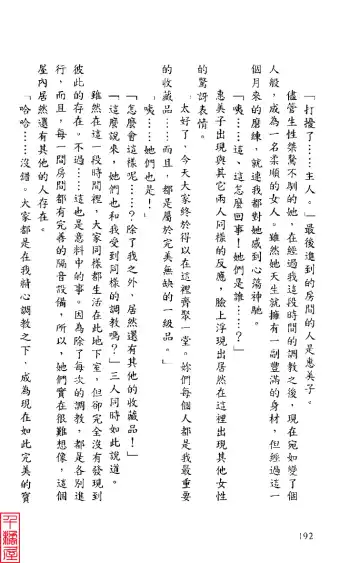 「打擾了……主人。」最後進到的房間的人是惠美子。
儘管生性桀驁不馴的她，在經過我這段時間的調教之後，現在宛如變了個
人般，成為一名柔順的女人。雖然她天生就擁有一副豐滿的身材，但經過這一
個月來的磨練，就連我都對她感到心蕩神馳。
「咦……這、這怎麼回事！她們是誰……？」
惠美子出現與其它兩人同樣的反應，臉上浮現出居然在這裡出現其他女性
的驚訝表情。
「太好了，今天大家終於得以在這裡齊聚一堂。妳們每個人都是我最重要
的收藏品……而且，都是屬於完美無缺的一級品。」
「咦……她們也是！」
「怎麼會這樣呢……？除了我之外，居然還有其他的收藏品！」
「這麼說來，她們也和我受到同樣的調教嗎？」三人同時如此說道。
雖然在這一段時間裡，大家同樣都生活在此地下室，但卻完全沒有發現到
彼此的存在。不過……這也是意料中的事。因為除了每次的調教，都是各別進
行，而且，每一間房間都有完善的隔音設備，所以，她們實在很難想像，這個
屋內居然還有其他的人存在。
「哈哈……沒錯。大家都是在我精心調教之下，成為現在如此完美的寶
192